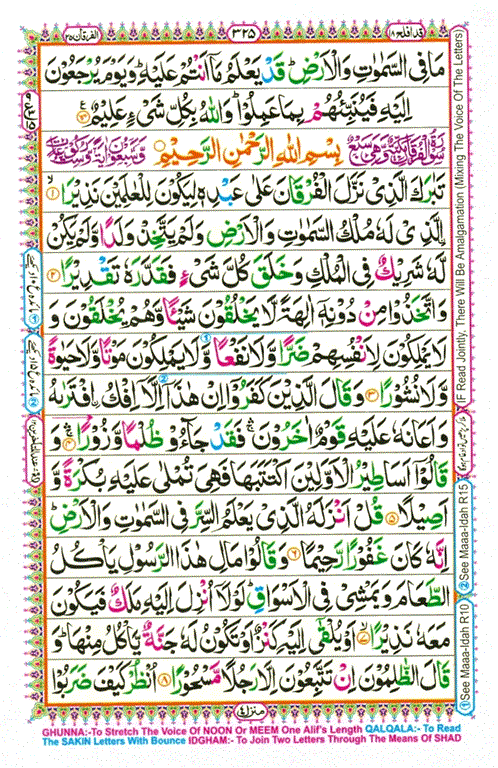 قد افلح ١٨
٣٢٥
الفرقان ٢٥
مَا فِى السَّمٰوٰتِ وَالْاَرْضِ ؕ قَدْ يَعْلَمُ مَاۤ اَنْتُمْ عَلَيْهِ ؕ وَيَوْمَ يُرْجَعُوْنَ
اِلَيْهِ فَيُنَبِّئُهُمْ بِمَا عَمِلُوْا ؕ وَاللّٰهُ بِكُلِّ شَىْءٍ عَلِيْمٌ
بِسْمِ اللّٰهِ الرَّحْمٰنِ الرَّحِيْمِ
تَبٰرَكَ الَّذِىْ نَزَّلَ الْفُرْقَانَ عَلٰى عَبْدِهٖ لِيَكُوْنَ لِلْعٰلَمِيْنَ نَذِيْرًا ۙ‏﴿۱﴾
اۨلَّذِىْ لَهٗ مُلْكُ السَّمٰوٰتِ وَالْاَرْضِ وَلَمْ يَتَّخِذْ وَلَدًا وَّلَمْ يَكُنْ
لَّهٗ شَرِيْكٌ فِى الْمُلْكِ وَخَلَقَ كُلَّ شَىْءٍ فَقَدَّرَهٗ تَقْدِيْرًا ﴿۲﴾
وَاتَّخَذُوْا مِنْ دُوْنِهٖۤ اٰلِهَةً لَّا يَخْلُقُوْنَ شَيْئًا وَّهُمْ يُخْلَقُوْنَ وَ
لَا يَمْلِكُوْنَ لِاَنْفُسِهِمْ ضَرًّا وَّلَا نَفْعًا وَّلَا يَمْلِكُوْنَ مَوْتًا وَّلَا حَيٰوةً
وَّلَا نُشُوْرًا ﴿۳﴾ وَقَالَ الَّذِيْنَ كَفَرُوْۤا اِنْ هٰذَاۤ اِلَّاۤ اِفْكُ اۨفْتَرٰٮهُ
وَاَعَانَهٗ عَلَيْهِ قَوْمٌ اٰخَرُوْنَ ۛۚ فَقَدْ جَآءُوْ ظُلْمًا وَّزُوْرًا ۛۚ ﴿۴﴾
وَقَالُوْۤا اَسَاطِيْرُ الْاَوَّلِيْنَ اكْتَتَبَهَا فَهِىَ تُمْلٰى عَلَيْهِ بُكْرَةً وَّ
اَصِيْلًا ﴿۵﴾ قُلْ اَنْزَلَهُ الَّذِىْ يَعْلَمُ السِّرَّ فِى السَّمٰوٰتِ وَالْاَرْضِ ؕ
اِنَّهٗ كَانَ غَفُوْرًا رَّحِيْمًا ﴿۶﴾ وَقَالُوْا مَالِ هٰذَا الرَّسُوْلِ يَاْكُلُ
الطَّعَامَ وَيَمْشِىْ فِى الْاَسْوَاقِ ؕ لَوْلَاۤ اُنْزِلَ اِلَيْهِ مَلَكٌ فَيَكُوْنَ
مَعَهٗ نَذِيْرًا ۙ‏﴿۷﴾ اَوْ يُلْقٰٓى اِلَيْهِ كَنْزٌ اَوْ تَكُوْنُ لَهٗ جَنَّةٌ يَّاْكُلُ مِنْهَا ؕ وَ
قَالَ الظّٰلِمُوْنَ اِنْ تَتَّبِعُوْنَ اِلَّا رَجُلًا مَّسْحُوْرًا ﴿۸﴾ اُنْظُرْ كَيْفَ ضَرَبُوْا
منزل ٤
(IF Read Jointly, There Will Be Amalgamation (Mixing The Voice Of The Letters)
② See Maaa-Idah R15
① See Maaa-Idah R10
GHUNNA:-To Stretch The Voice Of NOON Or MEEM One Alif's Length QALQALA:- To Read
The SAKIN Letters With Bounce IDGHAM:- To Join Two Letters Through The Means Of SHAD